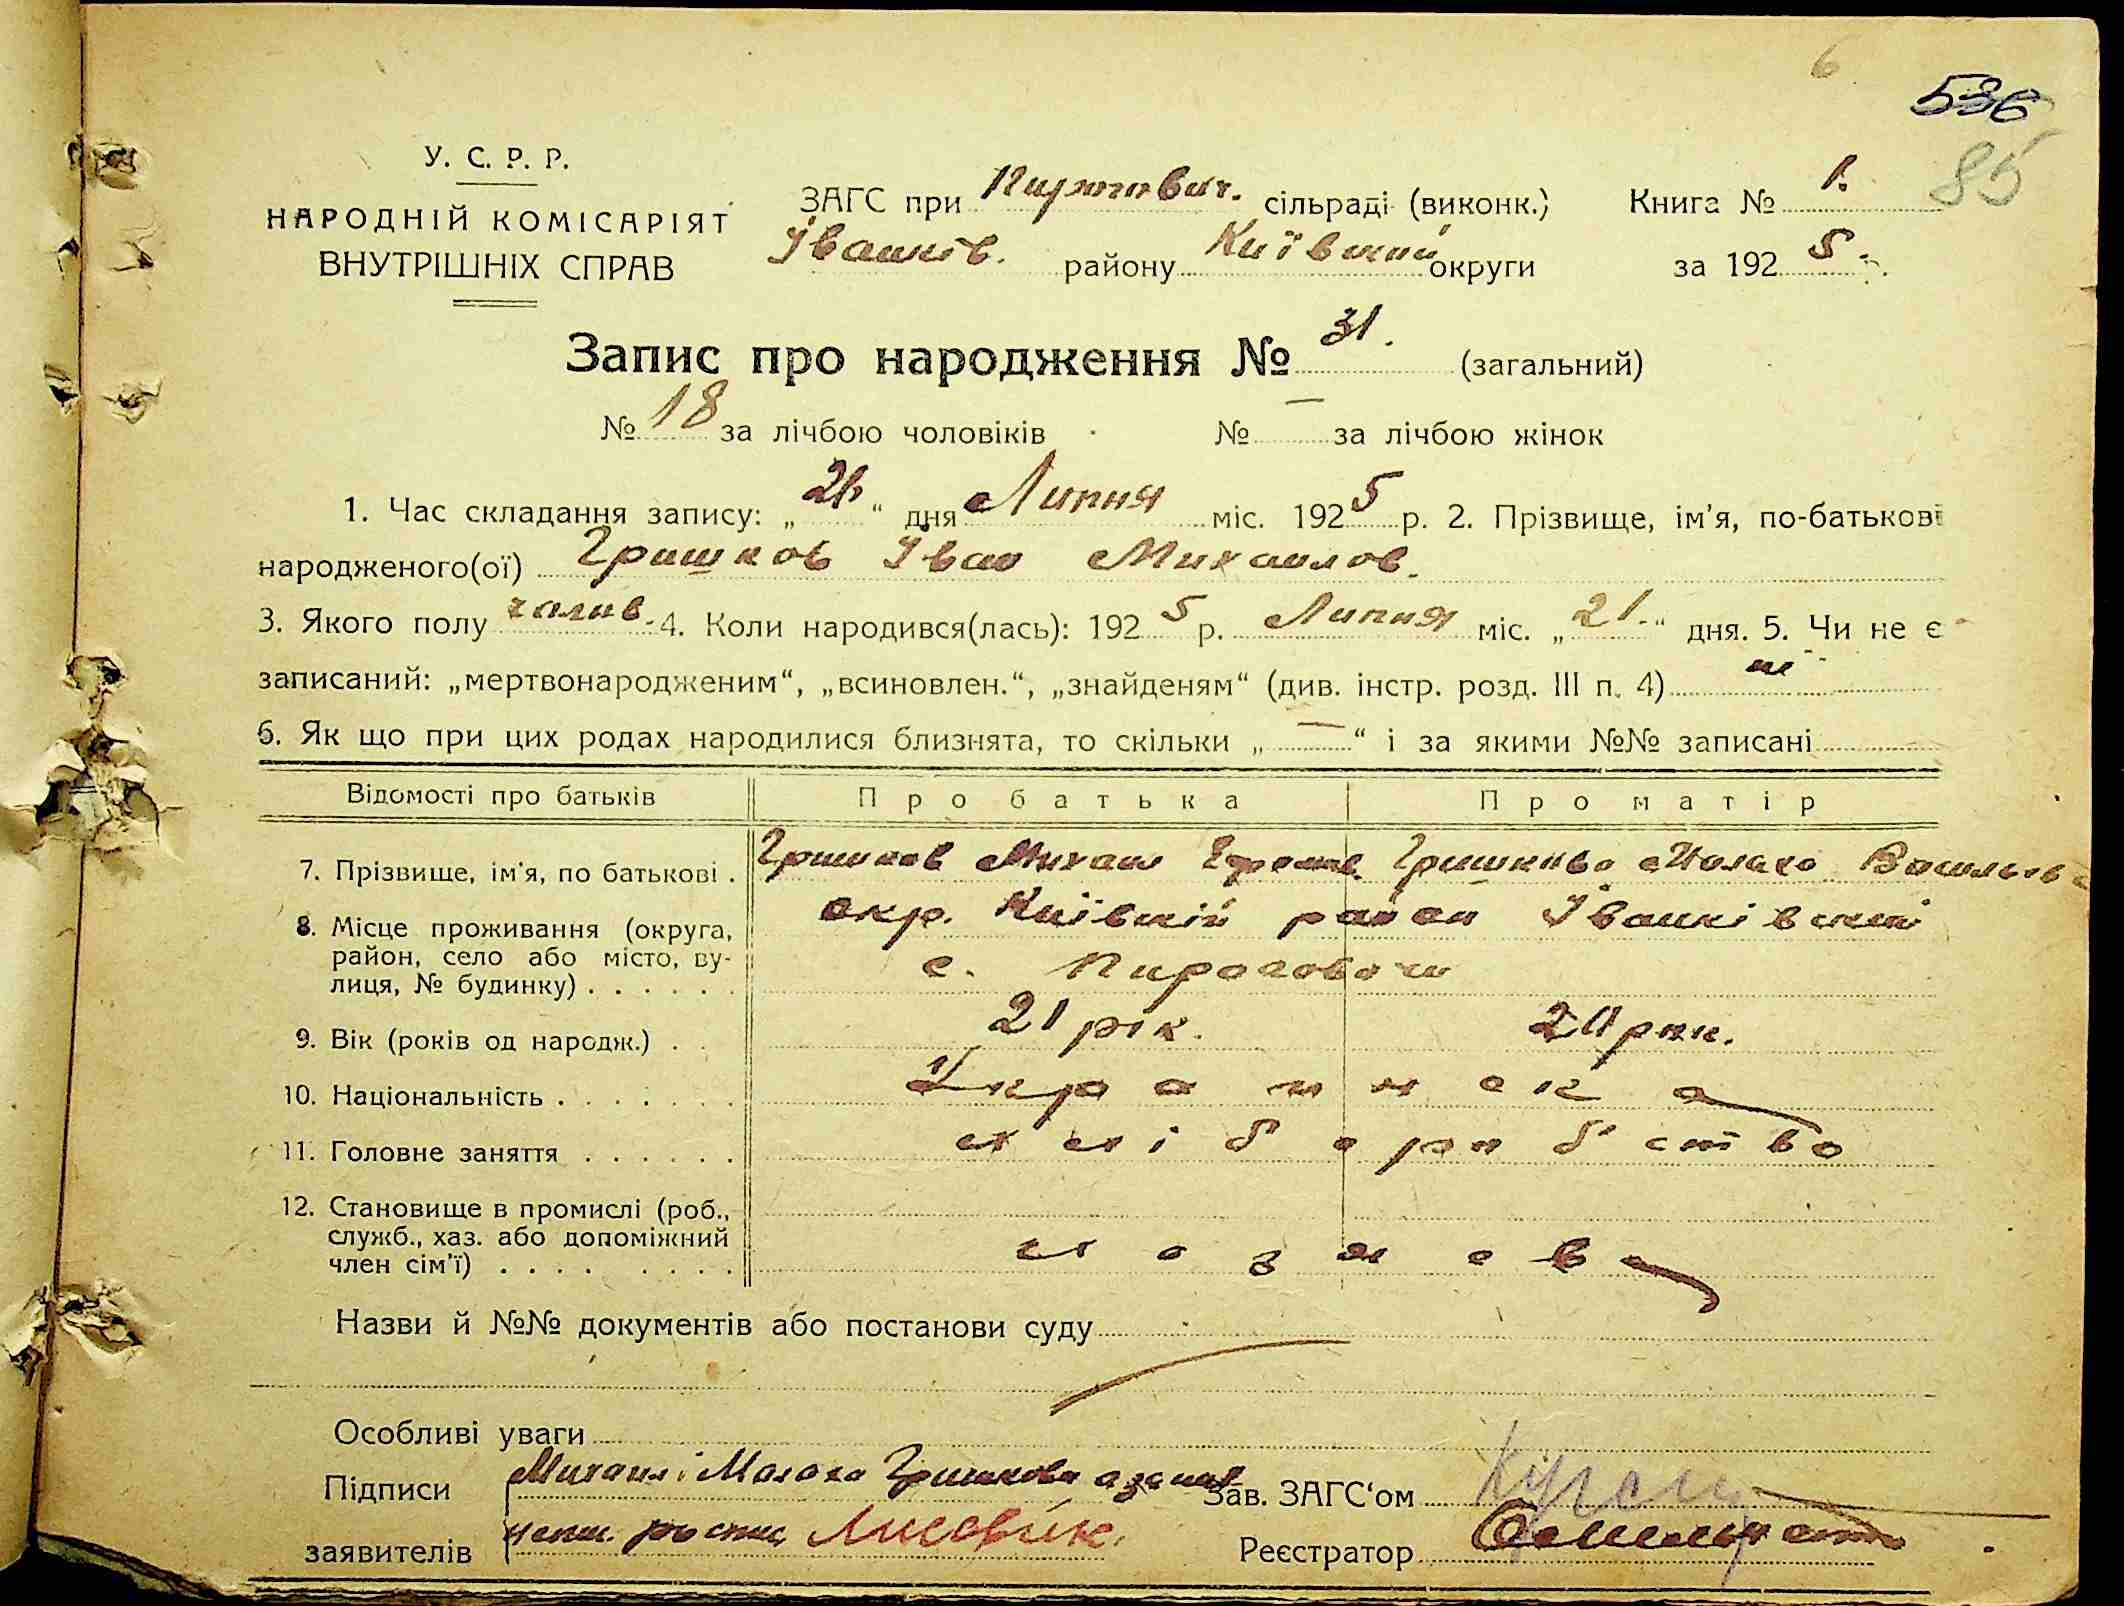 6
536
85
У. С. Р. Р.
НАРОДНІЙ КОМІСАРІЯТ
ВНУТРІШНІХ СПРАВ
ЗАГС при сільраді (виконк.)
Іванків. району Київський округи
Книга № 1.
за 1925 р.
Запис про народження № 31. (загальний)
№ 18 за лічбою чоловіків № — за лічбою жінок
1. Час складання запису: „ “ дня Липня міс. 1925 р. 2. Прізвище, ім'я, по-батькові
народженого(ої) Гришков Іван Михайлов.
3. Якого полу чолов. 4. Коли народився(лась): 1925 р. Липня міс. „21.“ дня. 5. Чи не є
записаний: „мертвонародженим“, „всиновлен.“, „знайденям“ (див. інстр. розд. III п. 4) ні
6. Як що при цих родах народилися близнята, то скільки „—“ і за якими №№ записані
Відомості про батьків Про батька Про матір
7. Прізвище, ім'я, по батькові . Гришков Михаил Гришкова
8. Місце проживання (округа, окр. Київскій район Іванківскій
район, село або місто, ву- с.
лиця, № будинку) . . . . . .
9. Вік (років од народж.) . . 21 рік.
10. Національність . . . . . . . Украинска
11. Головне заняття . . . . . . хліборобство
12. Становище в промислі (роб.,
служб., хаз. або допоміжний
член сім'ї) . . . . . . . .
Назви й №№ документів або постанови суду
Особливі уваги
Підписи Михаил і Гришкова а за них
заявителів непис. роспис. Лисовик.
Зав. ЗАГС'ом
Реєстратор